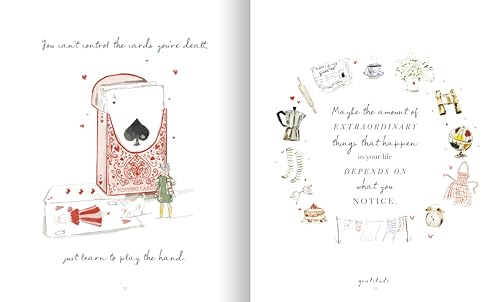 You can't control the cards you're dealt,
PLAYING CARDS
just learn to play the hand.
Maybe the amount of
EXTRAORDINARY
things that happen
in your life
DEPENDS ON
what you
NOTICE.
gratitude